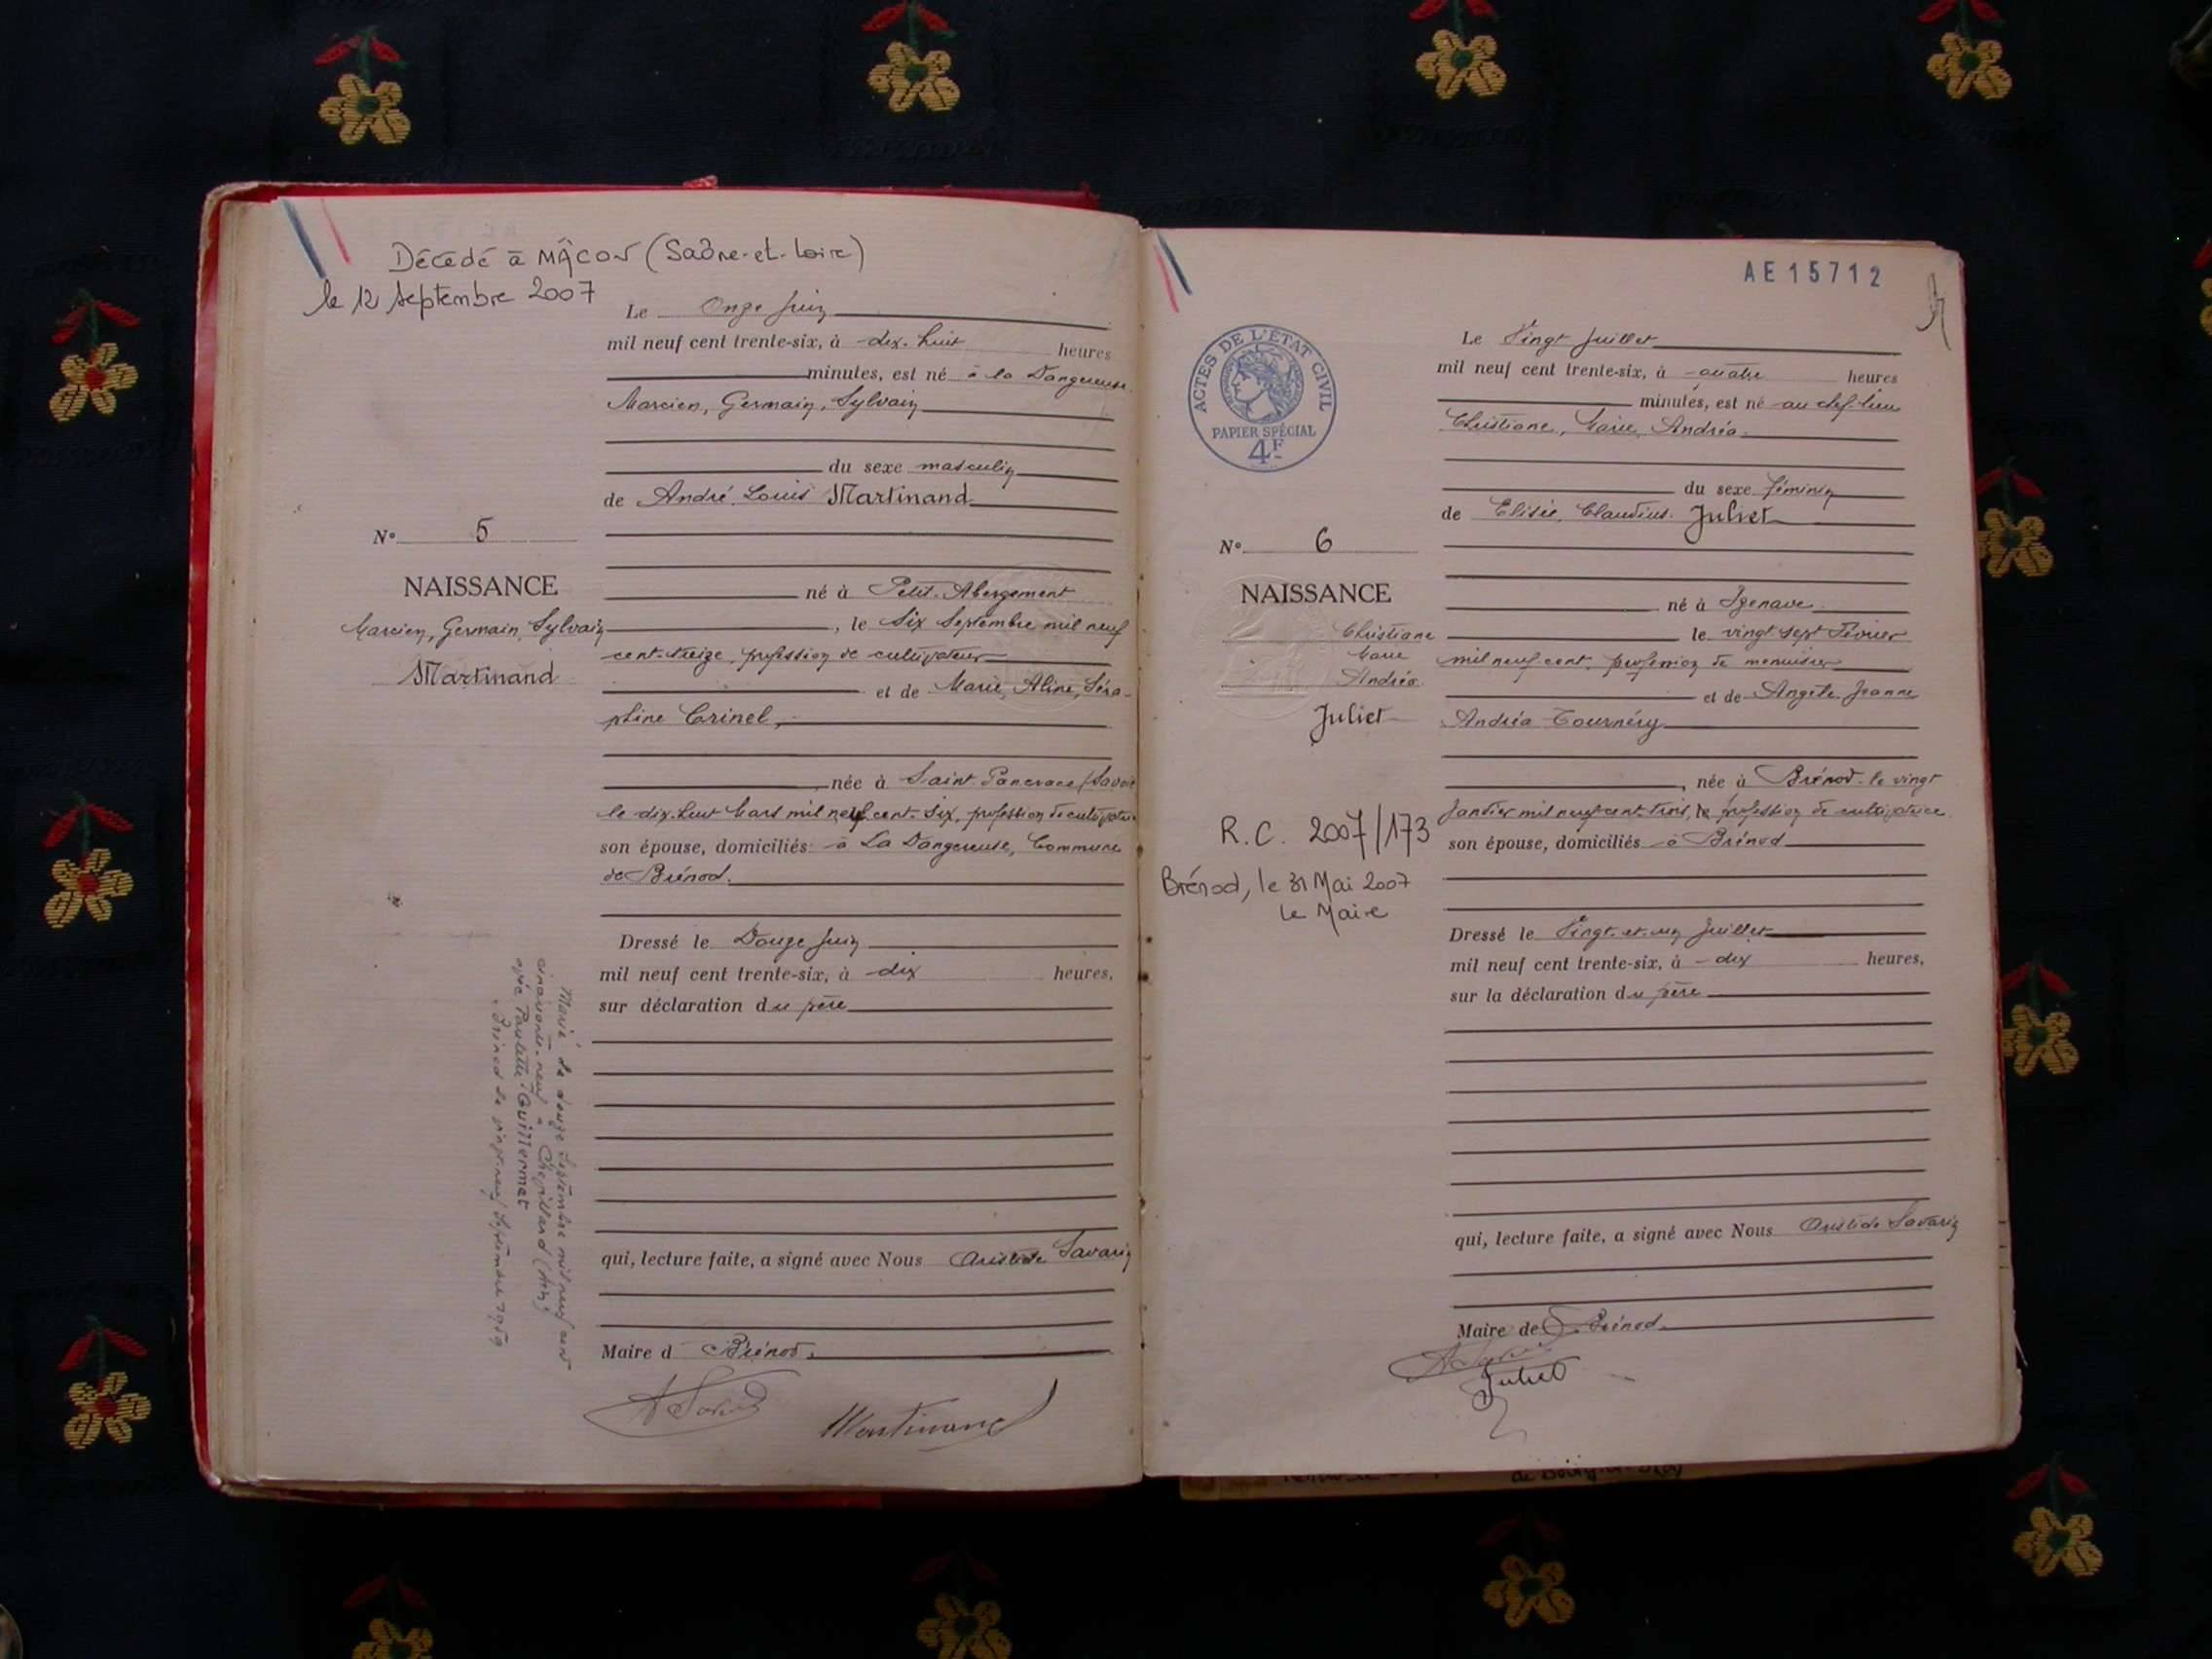 Décédé à MÂCON (Saône-et-Loire)
le 12 Septembre 2007
Le Onze Juin
mil neuf cent trente-six, à dix-huit heures
minutes, est né à la Dangereuse
Marcien, Germain, Sylvain
du sexe masculin
de André Louis Martinand
N° 5
NAISSANCE
Marcien, Germain, Sylvain
Martinand
né à Petit-Abergement
, le Six Septembre mil neuf
cent-treize, profession de cultivateur
et de Marie, Aline, Séra-
phine Crinel,
, née à Saint-Pancrace (Savoie
le dix-huit Mars mil neuf cent-six, profession de cultivatrice
son épouse, domiciliés à La Dangereuse, Commune
de Brénod.
Dressé le Douze Juin
mil neuf cent trente-six, à dix heures,
sur déclaration du père
qui, lecture faite, a signé avec Nous Aristide Savarin
Maire d Brénod.
A Savarin
Martinand
Marié le douze Septembre mil neuf cent
cinquante-neuf à Chevillard (Ain)
avec Paulette Guillermet
Brénod le vingt-neuf Septembre 1959
AE 15712
ACTES DE L'ÉTAT CIVIL
PAPIER SPÉCIAL
4F
Le Vingt Juillet
mil neuf cent trente-six, à quatre heures
minutes, est né au chef-lieu
Christiane, Marie, Andréa
du sexe féminin
de Elisée, Claudius Juliet
N° 6
NAISSANCE
Christiane
Marie
Andréa
Juliet
né à Izenave
le vingt-sept Février
mil neuf cent, profession de menuisier
et de Angèle Jeanne
Andréa Tournéry
, née à Brénod le vingt
Janvier mil neuf cent-trois, profession de cultivatrice
son épouse, domiciliés à Brénod
R.C. 2007/173
Brénod, le 31 Mai 2007
Le Maire
Dressé le Vingt-et-un Juillet
mil neuf cent trente-six, à dix heures,
sur la déclaration du père
qui, lecture faite, a signé avec Nous Aristide Savarin
Maire de Brénod.
A Savarin
Juliet